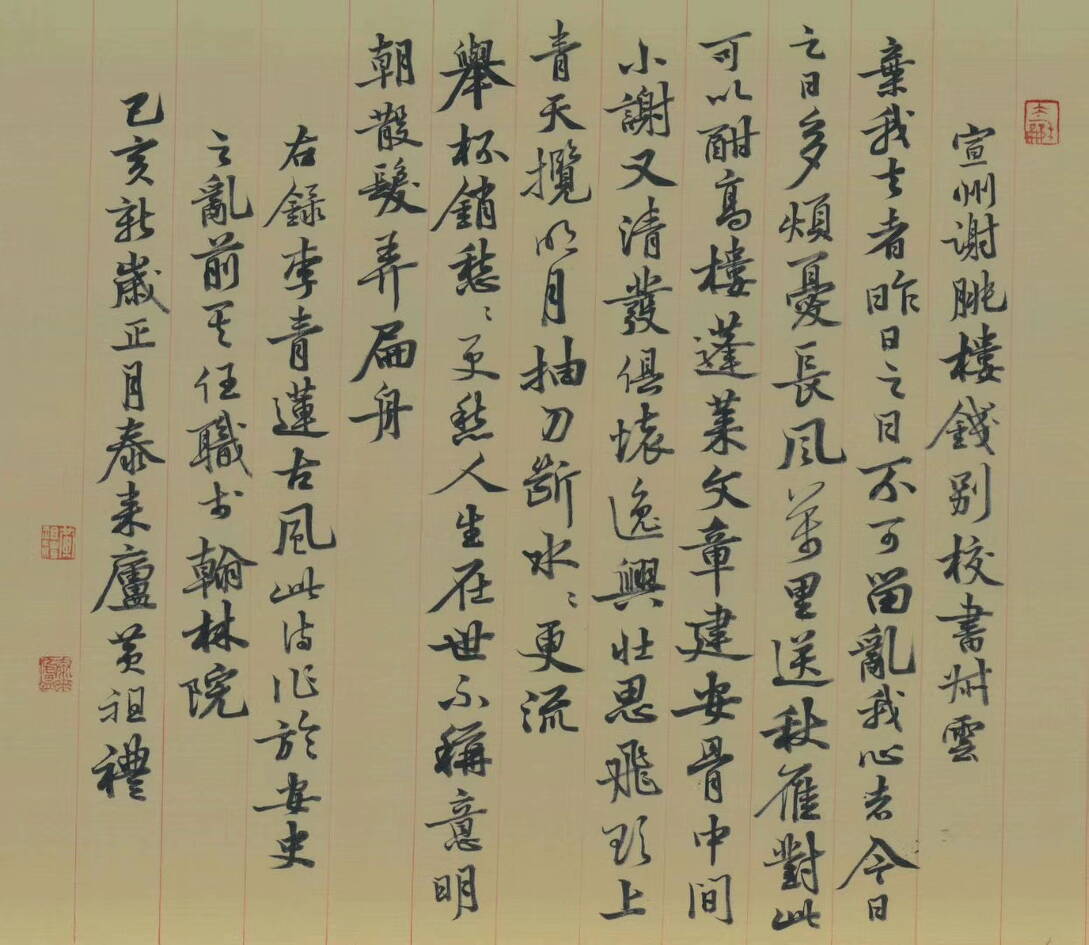 宣州謝朓樓餞別校書叔雲
棄我去者昨日之日不可留亂我心者今日
之日多煩憂長風萬里送秋雁對此
可以酣高樓蓬萊文章建安骨中間
小謝又清發俱懷逸興壯思飛欲上
青天攬明月抽刀斷水〻更流
舉杯銷愁〻更愁人生在世不稱意明
朝散髮弄扁舟
右錄李青蓮古風此詩作於安史
之亂前其任職於翰林院
己亥新歲正月泰來廬黃祖禮